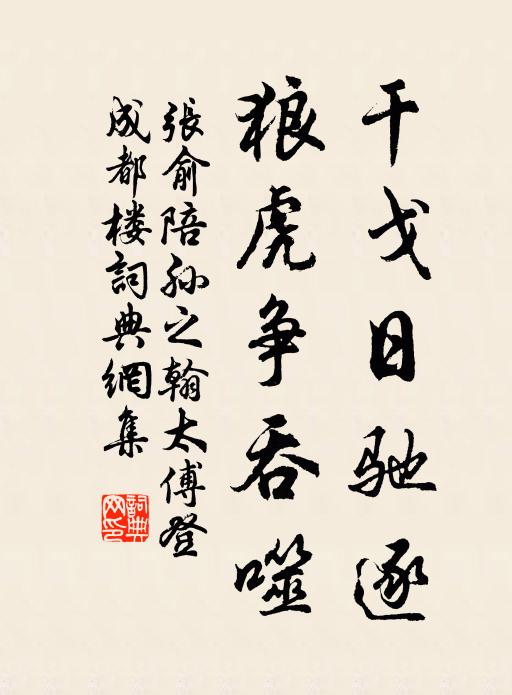 干戈日驰逐
狼虎争吞噬
張俞陪孙之翰太傅登
成都楼詞典網集
詞典網印